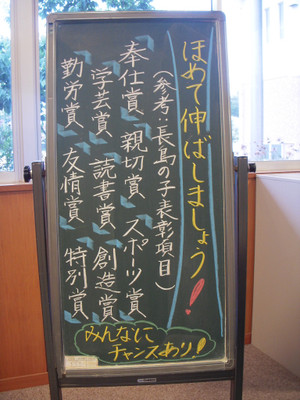 ほめて伸ばしましょう!
(参考:長島の子表彰項目)
奉仕賞 親切賞 スポーツ賞
学芸賞 読書賞 創造賞
勤労賞 友情賞 特別賞
みんなに
チャンスあり!